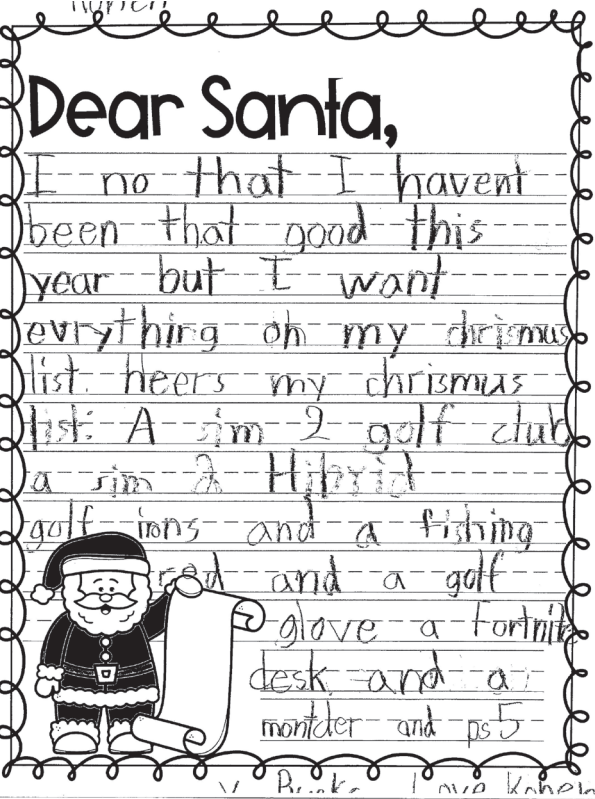 Dear Santa,
I no that I havent
been that good this
year but I want
evrything on my chrismus
list. heers my chrismus
list: A sim 2 golf club
a sim 2 Hibrid
golf irons and a fishing
red and a golf
glove a fortnite
desk and a
montder and ps5
Love